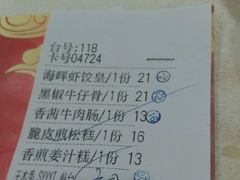 台号:118
卡号04724
海晖虾饺皇/1份 21
黑椒牛仔骨/1份 21
香茜牛肉肠/1份 13
脆皮煎松糕/1份 16
香煎姜汁糕/1份 13